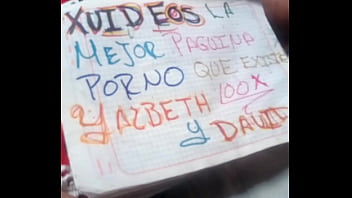 XUIDEOS LA
MEJOR PAGUINA
PORNO QUE EXISTE
YAZBETH 100X
Y DAVID